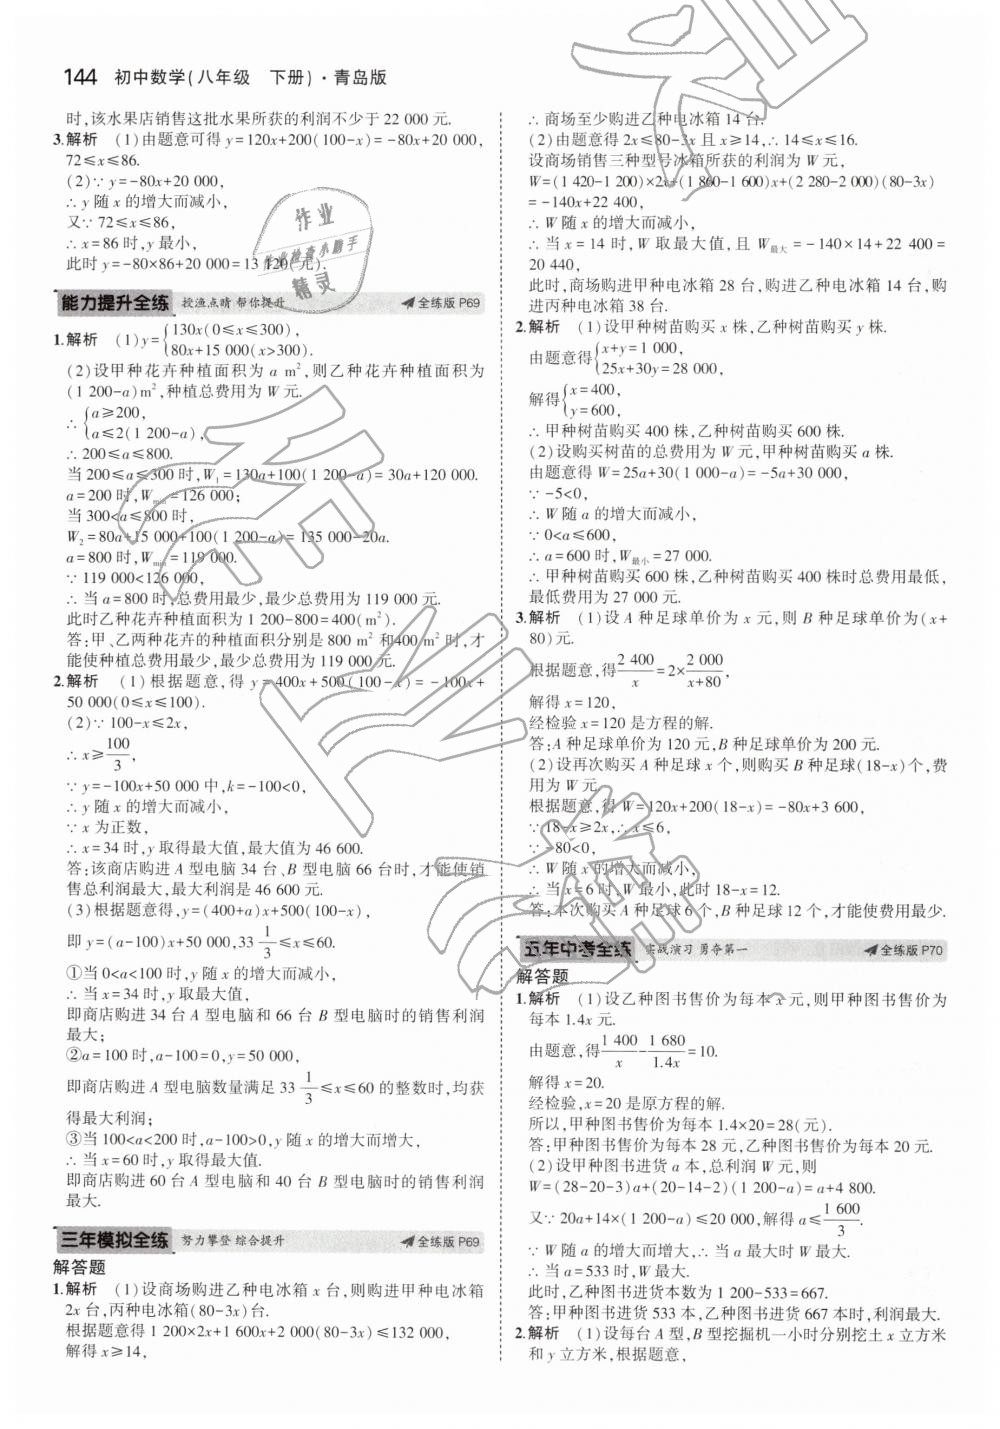 144 初中数学(八年级 下册)·青岛版
时,该水果店销售这批水果所获的利润不少于 22 000 元.
3.解析 (1)由题意可得 y=120x+200(100-x)=-80x+20 000,
72≤x≤86.
(2)∵ y=-80x+20 000,
∴ y 随 x 的增大而减小,
又∵ 72≤x≤86,
∴ x=86 时,y 最小,
此时 y=-80×86+20 000=13 120(元).
能力提升全练 授渔点睛 帮你提升 全练版 P69
1.解析 (1)y={130x(0≤x≤300),
80x+15 000(x>300).
(2)设甲种花卉种植面积为 a m²,则乙种花卉种植面积为
(1 200-a)m²,种植总费用为 W 元.
∴ {a≥200,
a≤2(1 200-a),
∴ 200≤a≤800.
当 200≤a≤300 时,W₁=130a+100(1 200-a)=30a+120 000.
a=200 时,Wmin=126 000;
当 300<a≤800 时,
W₂=80a+15 000+100(1 200-a)=135 000-20a.
a=800 时,Wmin=119 000.
∵ 119 000<126 000,
∴ 当 a=800 时,总费用最少,最少总费用为 119 000 元.
此时乙种花卉种植面积为 1 200-800=400(m²).
答:甲、乙两种花卉的种植面积分别是 800 m² 和400 m² 时,才
能使种植总费用最少,最少总费用为 119 000 元.
2.解析 (1)根据题意,得 y=400x+500(100-x)=-100x+
50 000(0≤x≤100).
(2)∵ 100-x≤2x,
∴ x≥100/3,
∵ y=-100x+50 000 中,k=-100<0,
∴ y 随 x 的增大而减小,
∵ x 为正数,
∴ x=34 时,y 取得最大值,最大值为 46 600.
答:该商店购进 A 型电脑 34 台、B 型电脑 66 台时,才能使销
售总利润最大,最大利润是 46 600 元.
(3)根据题意得,y=(400+a)x+500(100-x),
即 y=(a-100)x+50 000,33 1/3≤x≤60.
①当 0<a<100 时,y 随 x 的增大而减小,
∴ 当 x=34 时,y 取最大值,
即商店购进 34 台 A 型电脑和 66 台 B 型电脑时的销售利润
最大;
②a=100 时,a-100=0,y=50 000,
即商店购进 A 型电脑数量满足 33 1/3≤x≤60 的整数时,均获
得最大利润;
③当 100<a<200 时,a-100>0,y 随 x 的增大而增大,
∴ 当 x=60 时,y 取得最大值.
即商店购进 60 台 A 型电脑和 40 台 B 型电脑时的销售利润
最大.
三年模拟全练 努力攀登 综合提升 全练版 P69
解答题
1.解析 (1)设商场购进乙种电冰箱 x 台,则购进甲种电冰箱
2x 台,丙种电冰箱(80-3x)台.
根据题意得 1 200×2x+1 600x+2 000(80-3x)≤132 000,
解得 x≥14,
∴ 商场至少购进乙种电冰箱 14 台.
(2)由题意得 2x≤80-3x 且 x≥14,∴ 14≤x≤16.
设商场销售三种型号冰箱所获的利润为 W 元,
W=(1 420-1 200)×2x+(1 860-1 600)x+(2 280-2 000)(80-3x)
=-140x+22 400,
∴ W 随 x 的增大而减小,
∴ 当 x=14 时,W 取最大值,且 W最大=-140×14+22 400=
20 440,
此时,商场购进甲种电冰箱 28 台,购进乙种电冰箱 14 台,购
进丙种电冰箱 38 台.
2.解析 (1)设甲种树苗购买 x 株,乙种树苗购买 y 株.
由题意得{x+y=1 000,
25x+30y=28 000,
解得{x=400,
y=600,
∴ 甲种树苗购买 400 株,乙种树苗购买 600 株.
(2)设购买树苗的总费用为 W 元,甲种树苗购买 a 株.
由题意得 W=25a+30(1 000-a)=-5a+30 000,
∵ -5<0,
∴ W 随 a 的增大而减小,
∵ 0<a≤600,
∴ a=600 时,W最小=27 000.
∴ 甲种树苗购买 600 株,乙种树苗购买 400 株时总费用最低,
最低费用为 27 000 元.
3.解析 (1)设 A 种足球单价为 x 元,则 B 种足球单价为(x+
80)元.
根据题意,得2 400/x=2×2 000/(x+80),
解得 x=120,
经检验 x=120 是方程的解.
答:A 种足球单价为 120 元,B 种足球单价为 200 元.
(2)设再次购买 A 种足球 x 个,则购买 B 种足球(18-x)个,费
用为 W 元.
根据题意,得 W=120x+200(18-x)=-80x+3 600,
∵ 18-x≥2x,∴ x≤6,
∵ -80<0,
∴ W 随 x 的增大而减小,
∴ 当 x=6 时,W 最小,此时 18-x=12.
答:本次购买 A 种足球 6 个,B 种足球 12 个,才能使费用最少.
五年中考全练 实战演习 勇夺第一 全练版 P70
解答题
1.解析 (1)设乙种图书售价为每本 x 元,则甲种图书售价为
每本 1.4x 元.
由题意,得1 400/x-1 680/1.4x=10.
解得 x=20.
经检验,x=20 是原方程的解.
所以,甲种图书售价为每本 1.4×20=28(元).
答:甲种图书售价为每本 28 元,乙种图书售价为每本 20 元.
(2)设甲种图书进货 a 本,总利润 W 元,则
W=(28-20-3)a+(20-14-2)(1 200-a)=a+4 800.
又∵ 20a+14×(1 200-a)≤20 000,解得 a≤1 600/3.
∵ W 随 a 的增大而增大,
∴ 当 a=533 时,W 最大,
此时,乙种图书进货本数为 1 200-533=667.
答:甲种图书进货 533 本,乙种图书进货 667 本时,利润最大.
2.解析 (1)设每台 A 型,B 型挖掘机一小时分别挖土 x 立方米
和 y 立方米,根据题意,